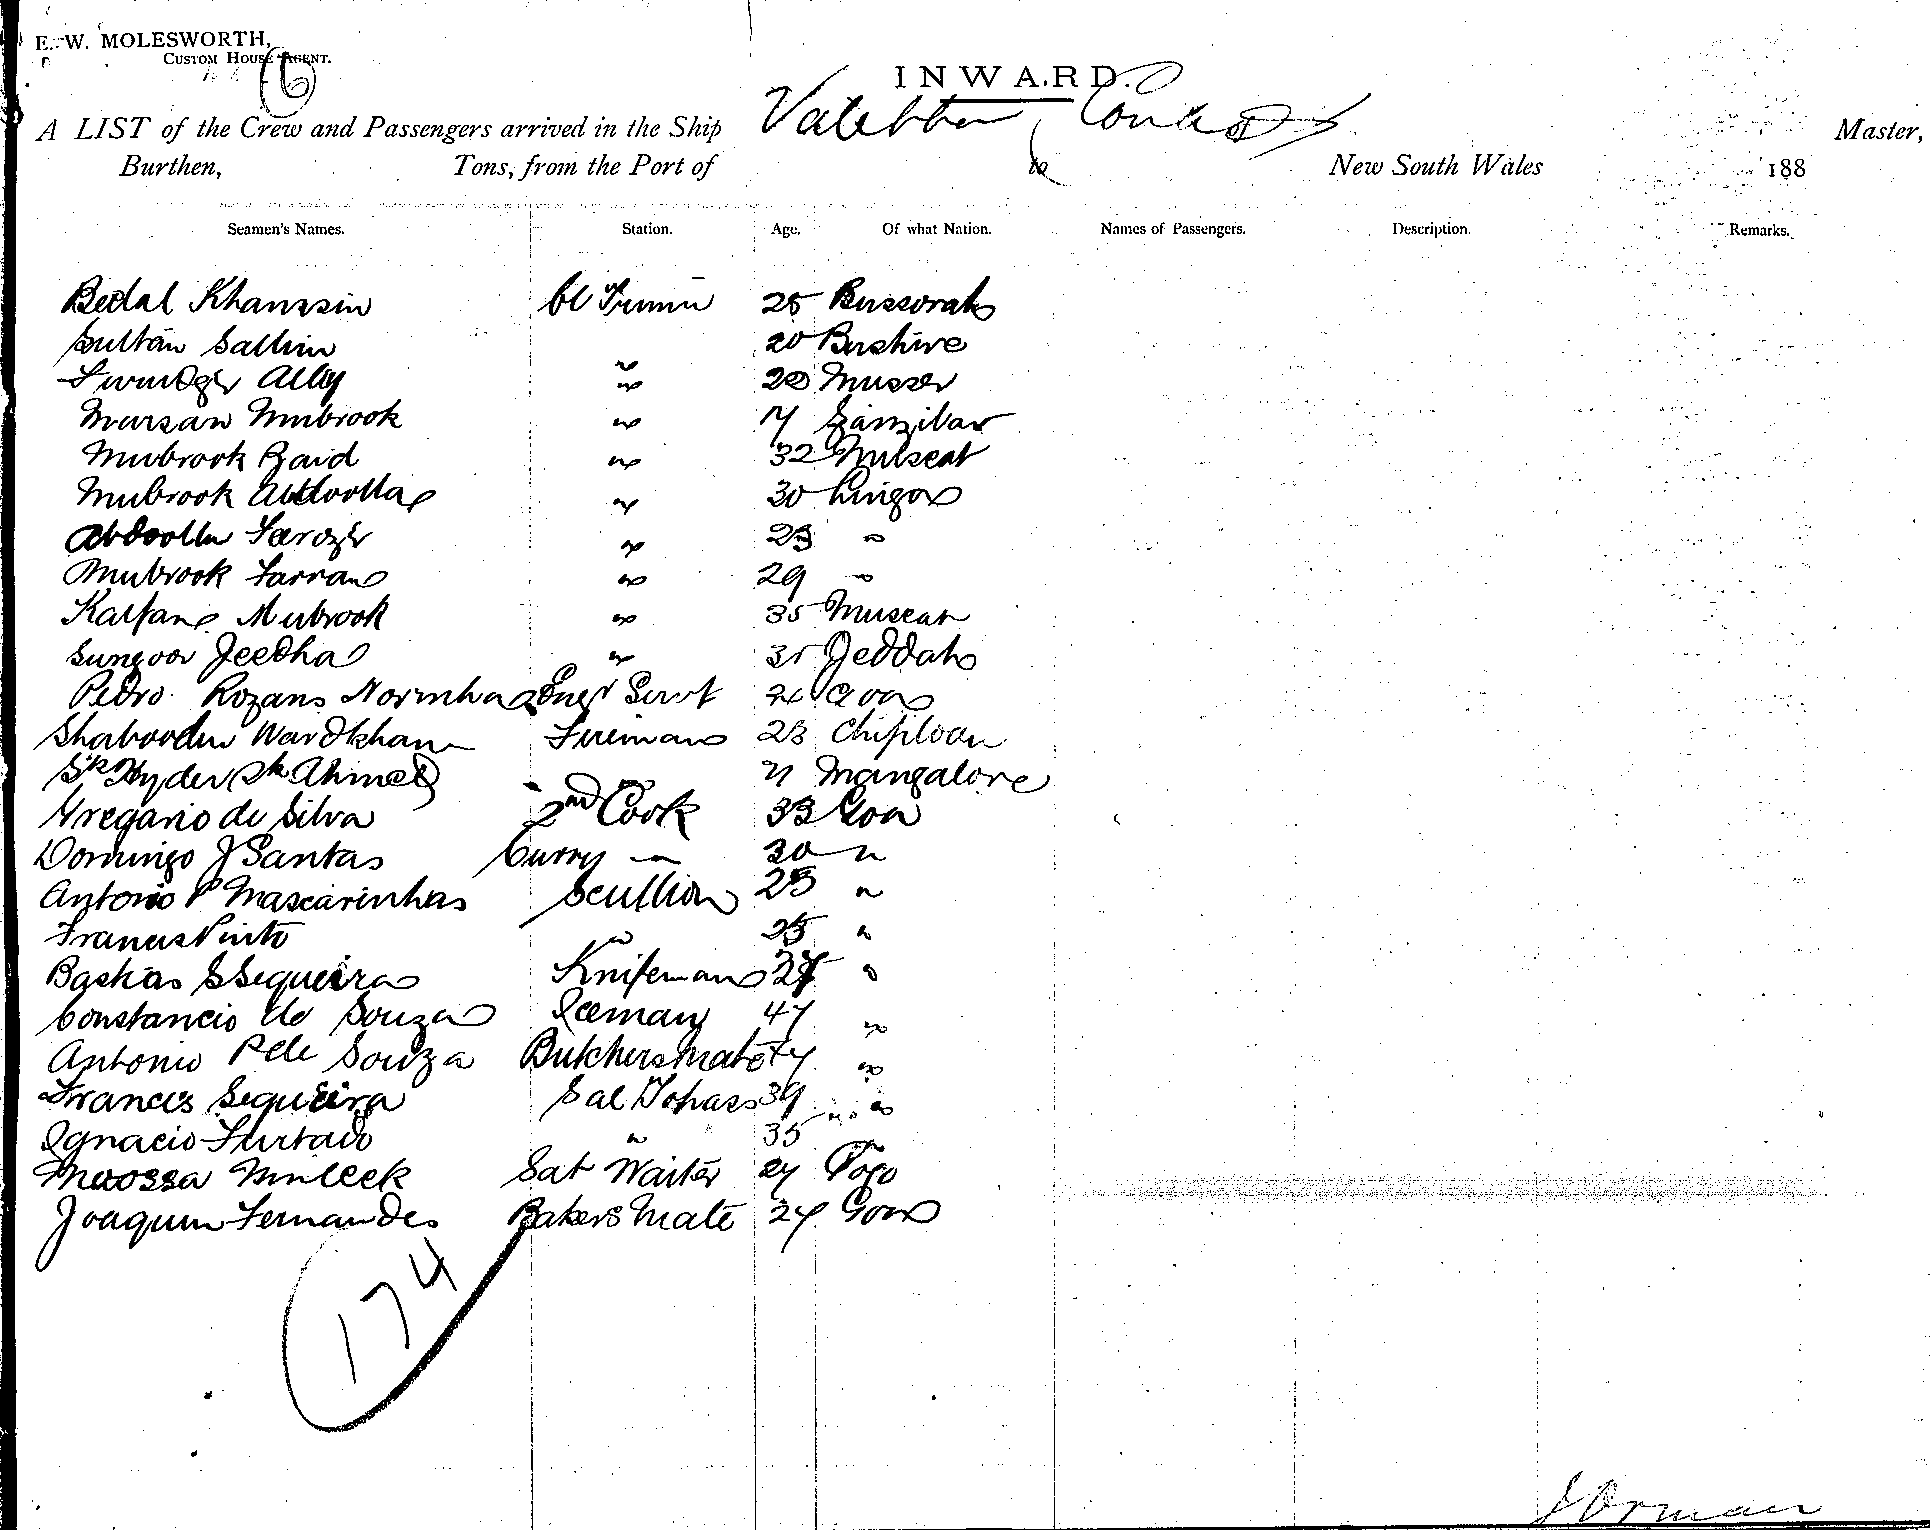 E. W. MOLESWORTH,
CUSTOM HOUSE AGENT.
6
INWARD.
A LIST of the Crew and Passengers arrived in the Ship Master,
Burthen, Tons, from the Port of to New South Wales 188
Seamen's Names. Station. Age. Of what Nation. Names of Passengers. Description. Remarks.
Bedal Khamssin 25 Bussorah
Sultan Sallim 20 Bushire
Alley " 20 Musser
Marsan Mubrook " 17 Zanzibar
Mubrook Zaid " 32 Muscat
Mubrook Abdoolla " 30 Lingoa
Abdoolla " 23 "
Mubrook Farran " 29 "
Kalfan Mubrook " 35 Muscat
Sungoor Jeedha " 35 Jeddah
Pedro Rozans Norinha Engr Servt Goa
Fireman 23 Chiploon
Sk Hyder Sk Ahmed " 21 Mangalore
Gregario de Silva 2nd Cook 33 Goa
Domingo J Santas Curry " 30 "
Antonio P Mascarinhas Scullion 25 "
Francis Pinto " 25 "
Baskas S Sequeira Knifeman 27 "
Constancio de Souza Iceman 47 "
Antonio P de Souza Butchers Mate "
Francis Sequeira Sal Tohass 39 "
Ignacio Furtado " 35 "
Moossa Mulleek Sal Waiter 27
Joaquim Fernandes Bakers Mate 27 Goa
174
J Orman